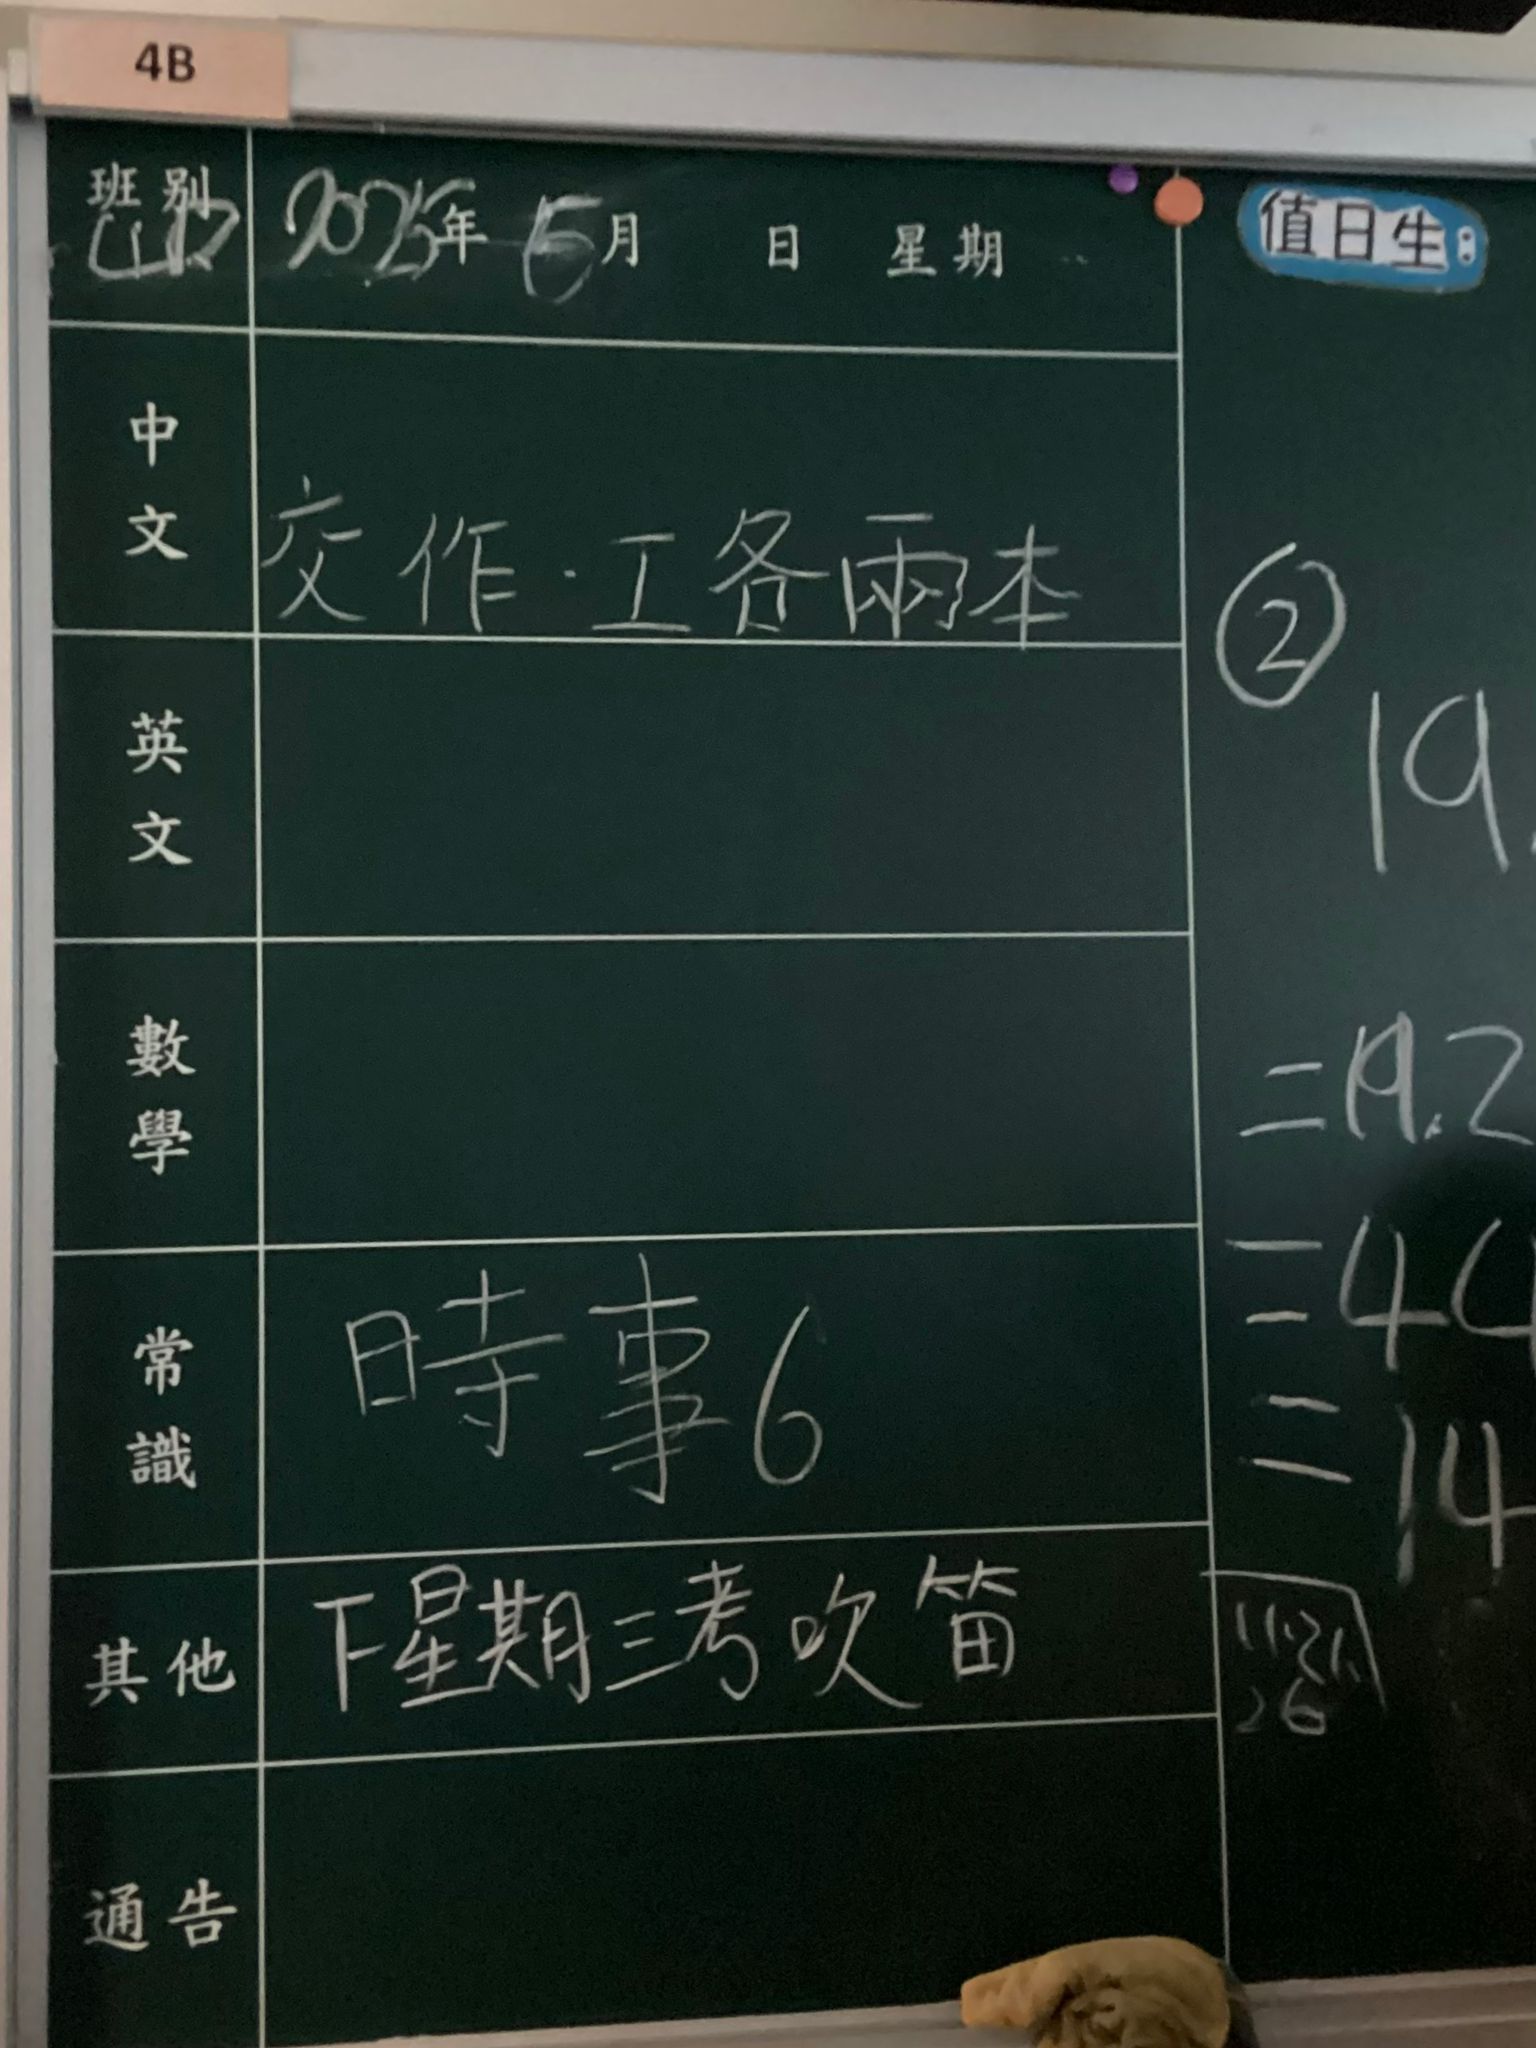 4B
班別 2025年 5月 日 星期
值日生:
中文
交作.工各兩本
英文
數學
常識
時事6
其他
下星期三考吹笛
通告
②
19.
=19.2
=44
=14
26